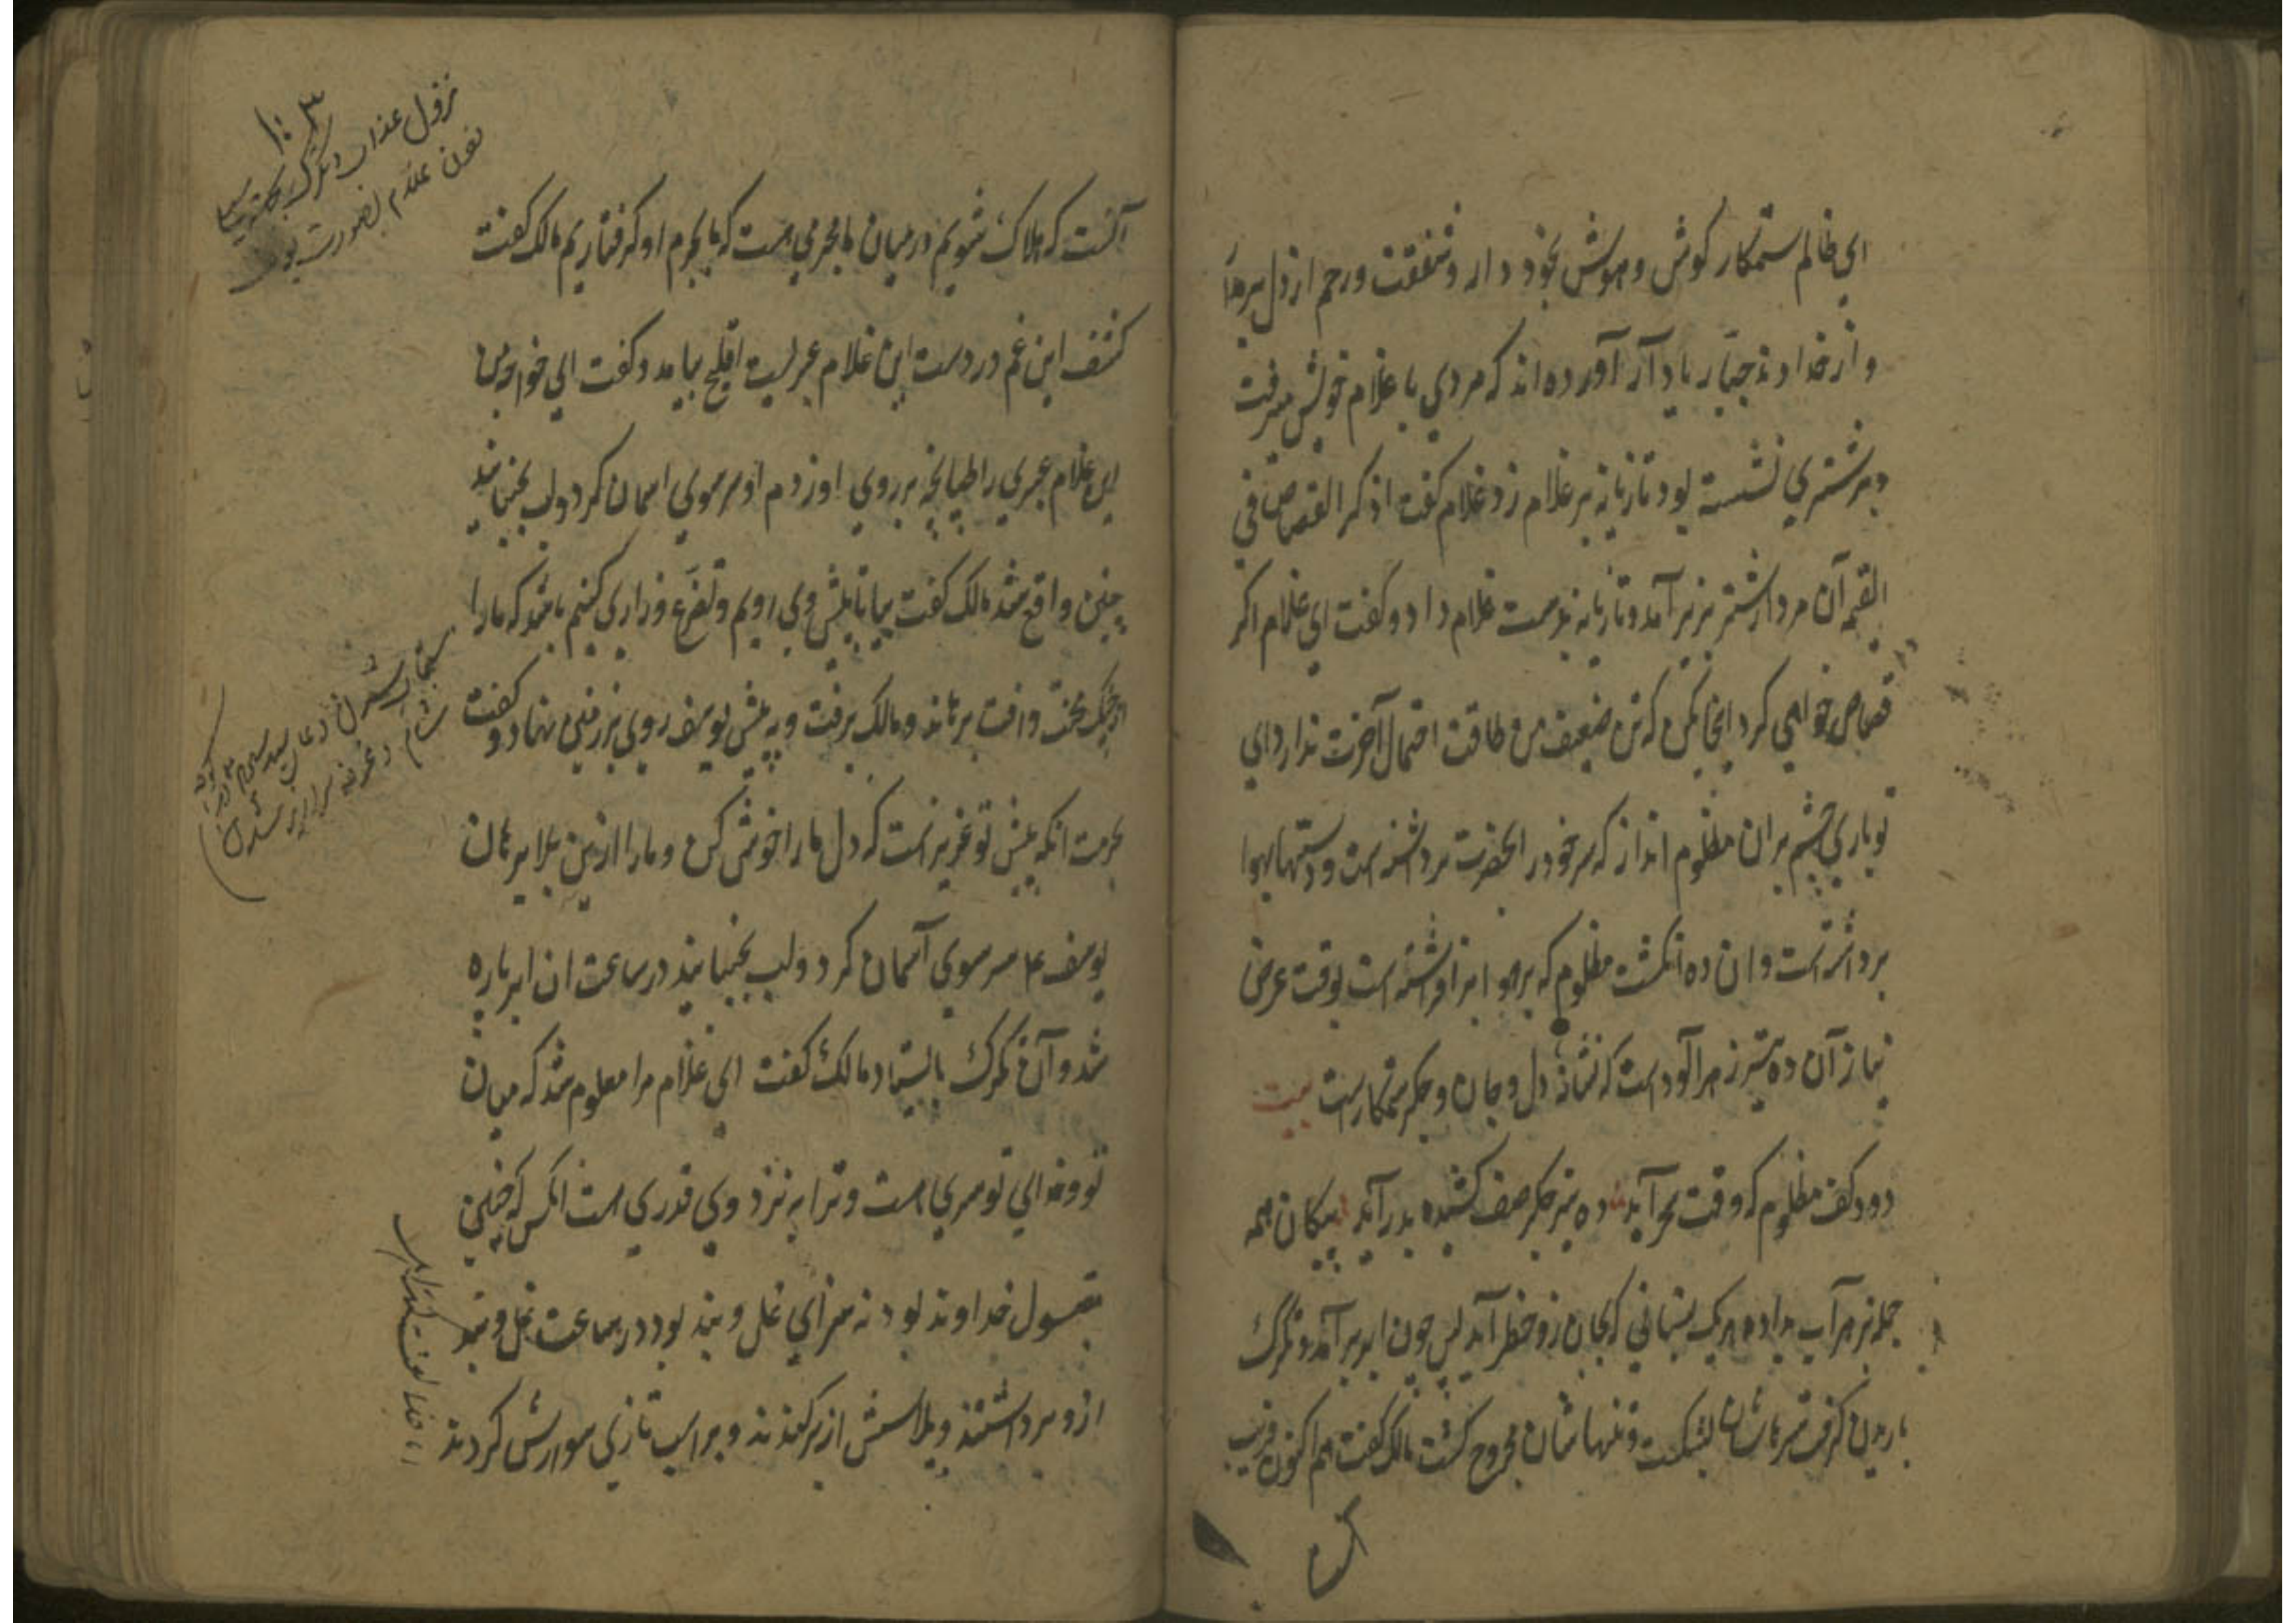 ای ظالم ستمکار کوش و هوش بخود دار و شفقت و رحم از دل بر مدا
و از خداوند جبار یاد آر آورده اند که مردی با غلام خویش میرفت
و بر شتری نشسته بود تازیانه بر غلام زد غلام کفت اذکر القصاص فی
القیمه آن مرد از شتر بزیر آمد و تازیانه بدست غلام داد و کفت ای غلام اکر
قصاص خواهی کرد اینجا بکن که تن ضعیف من طاقت احتمال آخرت ندارد ای
تو باری چشم بران مظلوم انداز که سر خود در انحضرت برداشته است و دستها بهوا
برداشته است و ان ده انکشت مظلوم که بر هوا بر افراشته است بوقت عرض
نیاز آن ده تیر زهر آلود است که نشانه دل و جان و جکر ستمکار است بیت
دو کف مظلوم که وقت سحر آید ده تیر جکر صف کشیده بدر آید پیکان همه
جمله بزهر آب داده هر یک بنشانی که بجان زو خطر آید پس چون ابر بر آمد و تکرک
باریدن کرفت سرهاشان بشکست و تنهاشان مجروح کشت مالک کفت هم اکنون قریب
انست
آنست که هلاک شویم در میان ما مجرمی است که ما بجرم او کرفتاریم مالک کفت
کشف این غم در دست این غلام عبریست افلح بیامد و کفت ای خواجه من
این غلام عبری را طپانچه بر روی او زدم او سر سوی اسمان کرد و لب بجنبانید
چنین واقع شد مالک کفت بیا تا پیش وی رویم و تضرع و زاری کنیم باشد که مارا
از چنک محنت و افت برهاند و مالک برفت و به پیش یوسف روی بر زمین نهاد و کفت
بحرمت انکه پیش تو عزیز است که دل مارا خوش کن و مارا ازین بلا برهان
یوسف ع سر سوی آسمان کرد و لب بجنبانید در ساعت ان ابر پاره
شد و آن تکرک بایستاد مالک کفت ای غلام مرا معلوم شد که میان
تو و خدای تو سری است و ترا به نزد وی قدری است انکس که چنین
مقبول خداوند بود نه سزای غل و بند بود در ساعت غل و بند
ازو برداشتند و پلاسش از بر کندند و بر اسب تازی سوارش کردند
۱۰۳
نزول عذاب تکرک